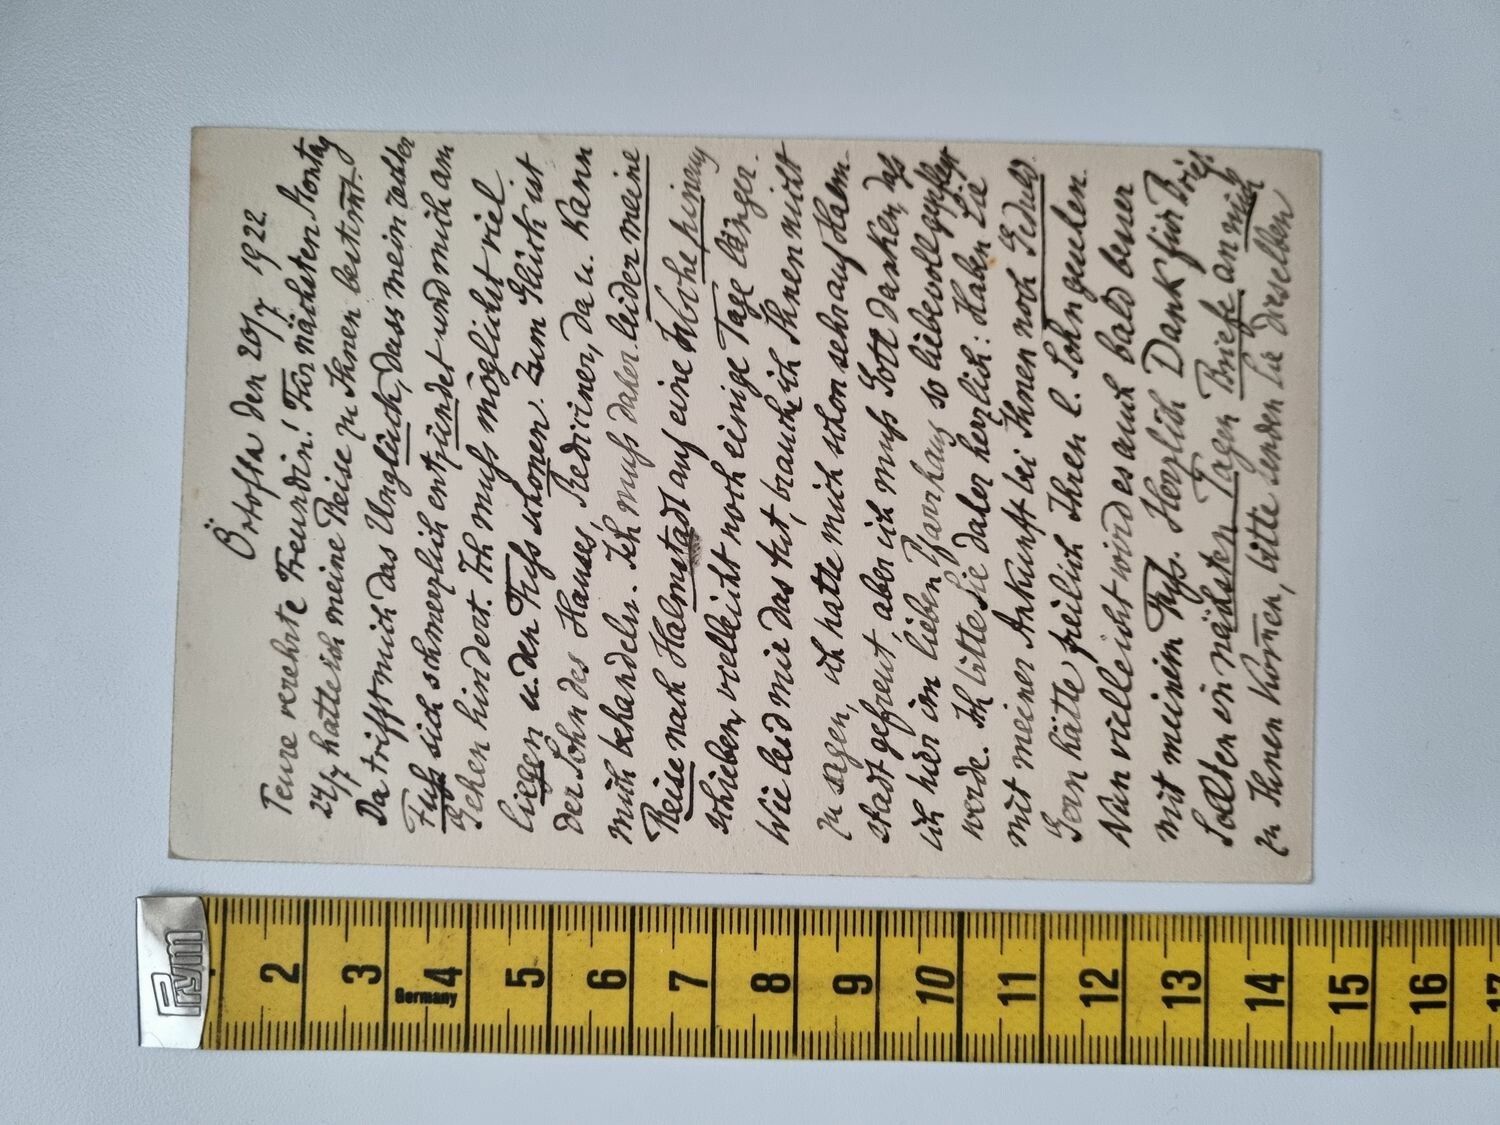 Örtofta den 20/7 1922
Teure verehrte Freundin! Für nächsten Montag
24/7 hatte ich meine Reise zu Ihnen bestimt.
Da trifft mich das Unglück, dass mein rechter
Fuß sich schmerzlich entzündet und mich am
Gehen hindert. Ich muß möglichst viel
liegen u. den Fuß schonen. Zum Glück ist
der Sohn des Hauses, Mediciner, da u. kann
mich behandeln. Ich muß daher leider meine
Reise nach Halmstadt auf eine Woche hinaus
schieben, vielleicht noch einige Tage länger.
Wie leid mir das tut, brauche ich Ihnen nicht
zu sagen, ich hatte mich schon sehr auf Halm-
stadt gefreut, aber ich muß Gott danken, daß
ich hier im lieben Pfarrhaus so liebevoll gepflegt
werde. Ich bitte Sie daher herzlich: Haben Sie
mit meiner Ankunft bei Ihnen noch Geduld.
Gern hätte freilich Ihren l. Sohn gesehen.
Nun vielleicht wird es auch bald besser
mit meinem Fuß. Herzlich Dank für Brief.
Sollten in nächsten Tagen Briefe an mich
zu Ihnen kom̄en, bitte senden Sie dieselben
Prym
Germany
2 3 4 5 6 7 8 9 10 11 12 13 14 15 16 17